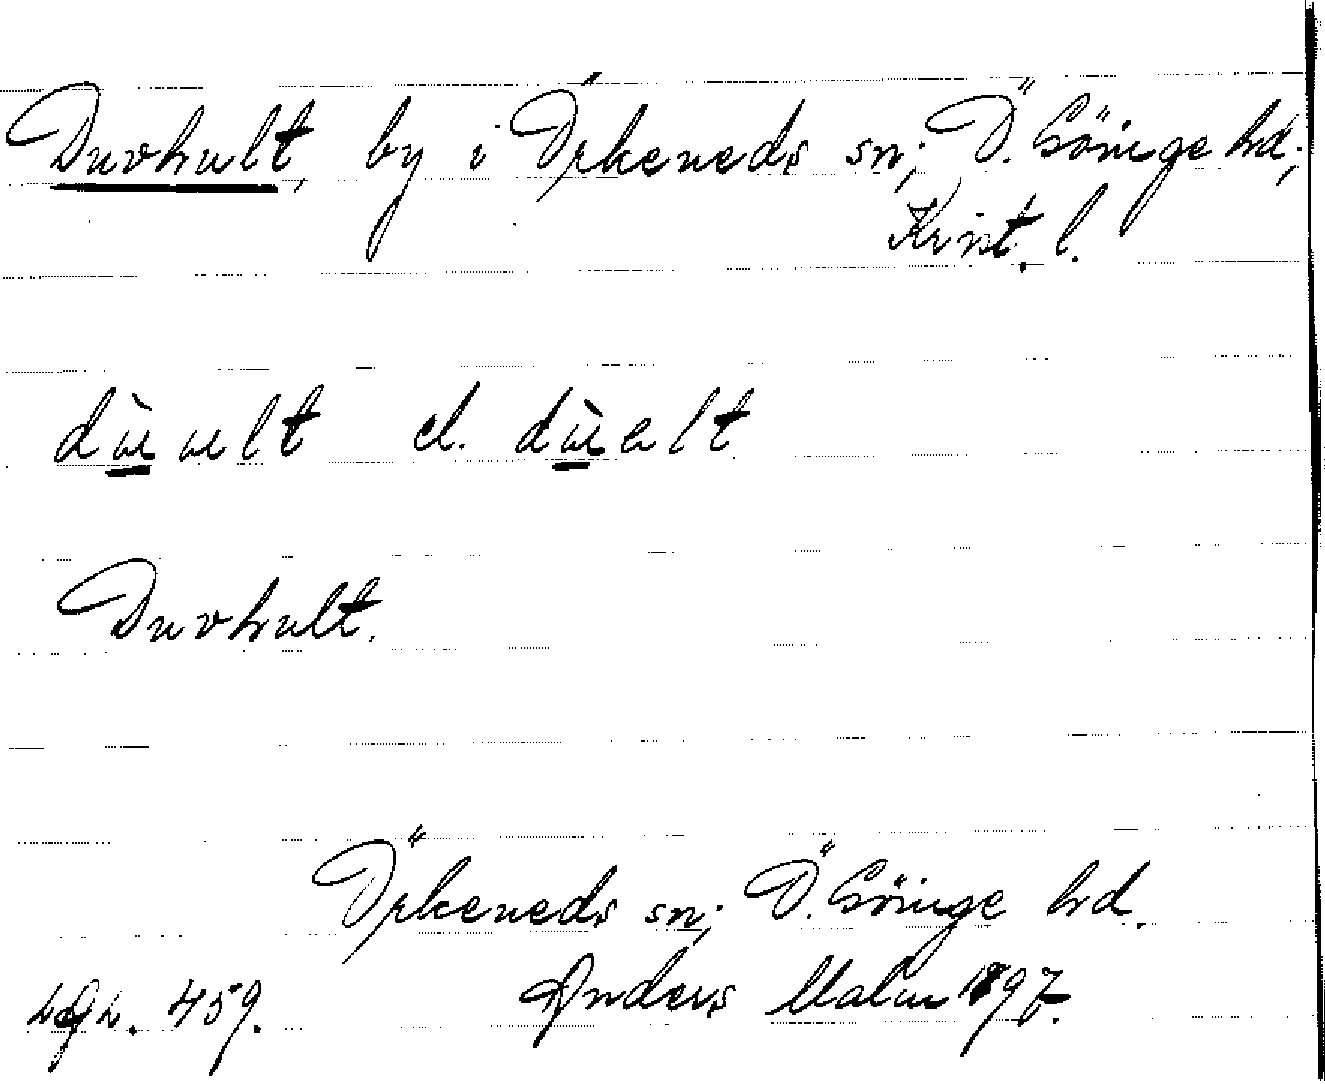 Duvhult, by i Örkeneds sn; Ö. Göinge hd;
Krist. l.
dùult el. dùelt
Duvhult.
Örkeneds sn; Ö. Göinge hd.
Anders Malm 1897.
459.